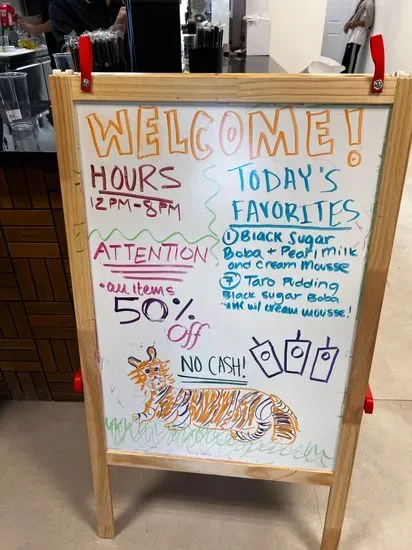 WELCOME!
HOURS
12PM-8PM
ATTENTION
• all items
50%
off
TODAY'S
FAVORITES
① Black Sugar
Boba + Pearl Milk
and Cream Mousse
⑦ Taro Pudding
Black sugar Boba
w/ cream mousse!
NO CASH!